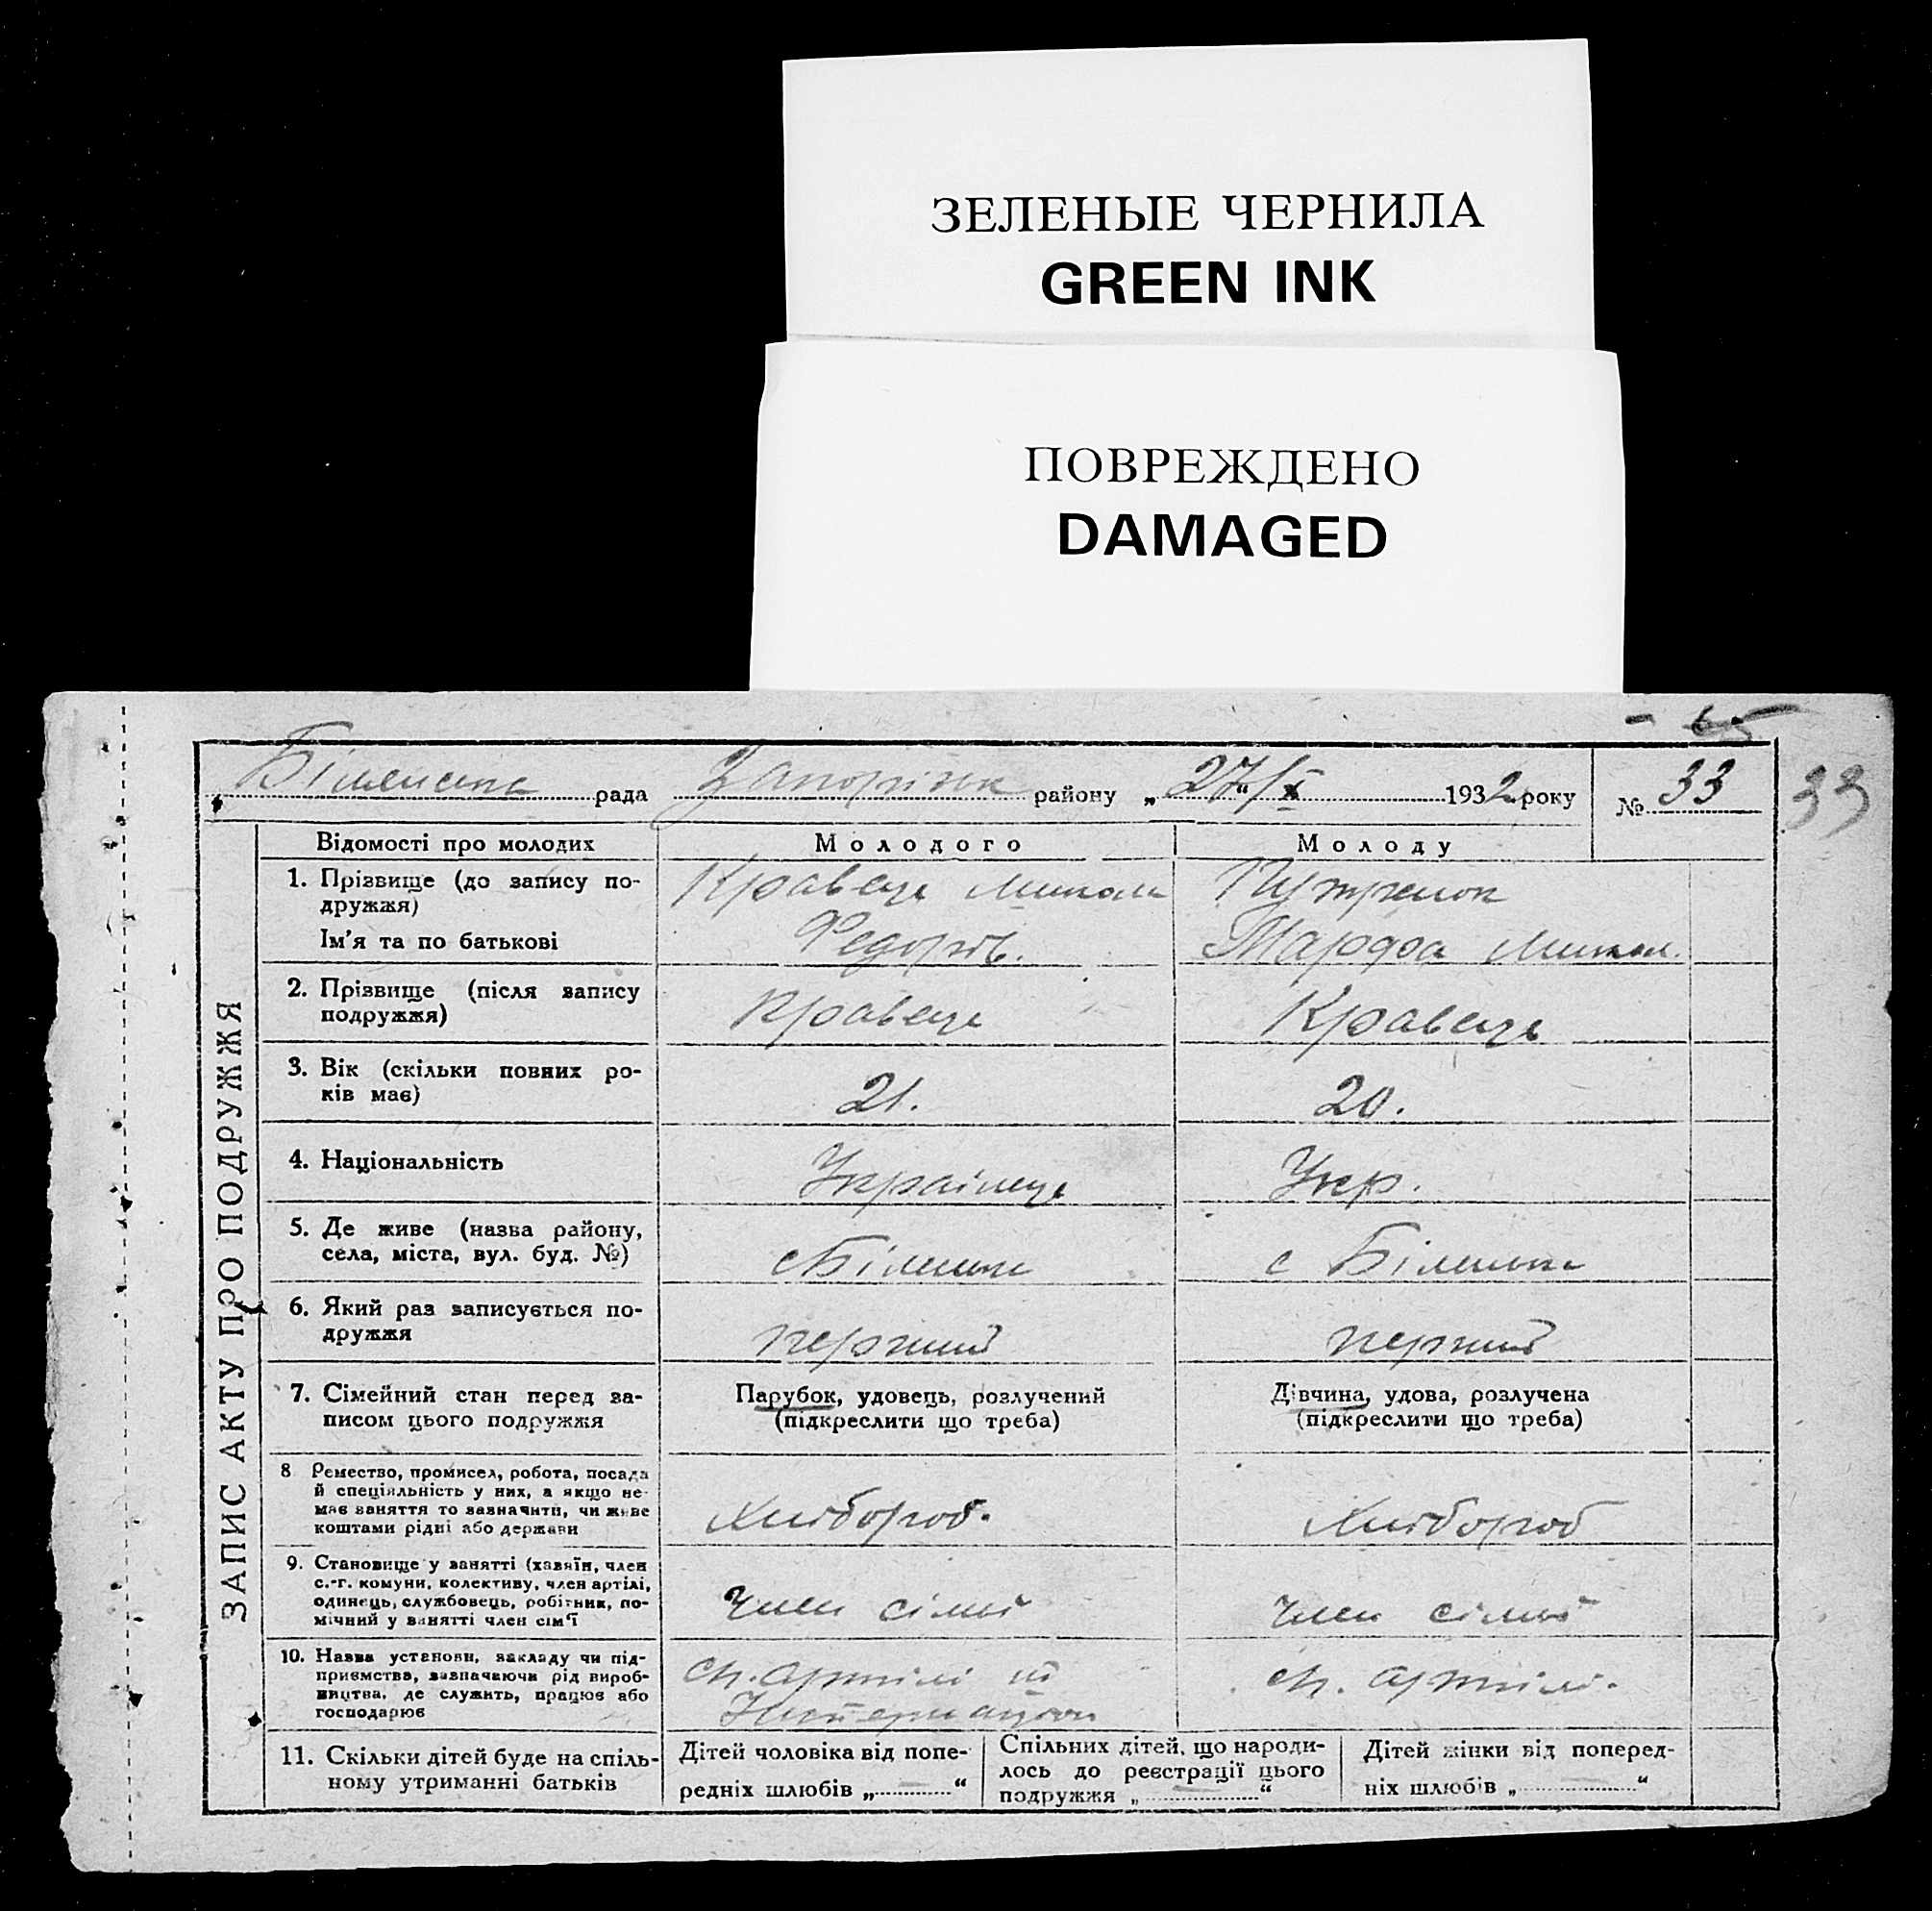 ЗЕЛЕНЫЕ ЧЕРНИЛА
GREEN INK
ПОВРЕЖДЕНО
DAMAGED
Біленська рада Запорізьк району „27“/X 1932 року № 33
33
ЗАПИС АКТУ ПРО ПОДРУЖЖЯ
Відомості про молодих
Молодого
Молоду
1. Прізвище (до запису по-
дружжя)
Ім'я та по батькові
Кравець Микола
Федорів.
Марфа Микол.
2. Прізвище (після запису
подружжя)
Кравець
Кравець
3. Вік (скільки повних ро-
ків має)
21.
20.
4. Національність
Українець
Укр.
5. Де живе (назва району,
села, міста, вул. буд. №)
с Біленьке
с Біленьке
6. Який раз записується по-
дружжя
перший
перший
7. Сімейний стан перед за-
писом цього подружжя
Парубок, удовець, розлучений
(підкреслити що треба)
Дівчина, удова, розлучена
(підкреслити що треба)
8 Ремество, промисел, робота, посада
й спеціяльність у них, а якщо не-
має заняття то зазначити, чи живе
коштами рідні або держави
Хлібороб.
Хлібороб
9. Становище у занятті (хазяїн, член
с.-г. комуни, колективу, член артілі,
одинець, службовець, робітник, по-
мічний у занятті член сім'ї
Член сімьї
член сімьї
10. Назва установи, закладу чи під-
приємства, зазначаючи рід вироб-
ництва, де служить, працює або
господарює
артілі
Інтернаціон
артілі.
11. Скільки дітей буде на спіль-
ному утриманні батьків
Дітей чоловіка від попе-
редніх шлюбів „ “
Спільних дітей, що народи-
лось до реєстрації цього
подружжя „ “
Дітей жінки від поперед-
ніх шлюбів „ “